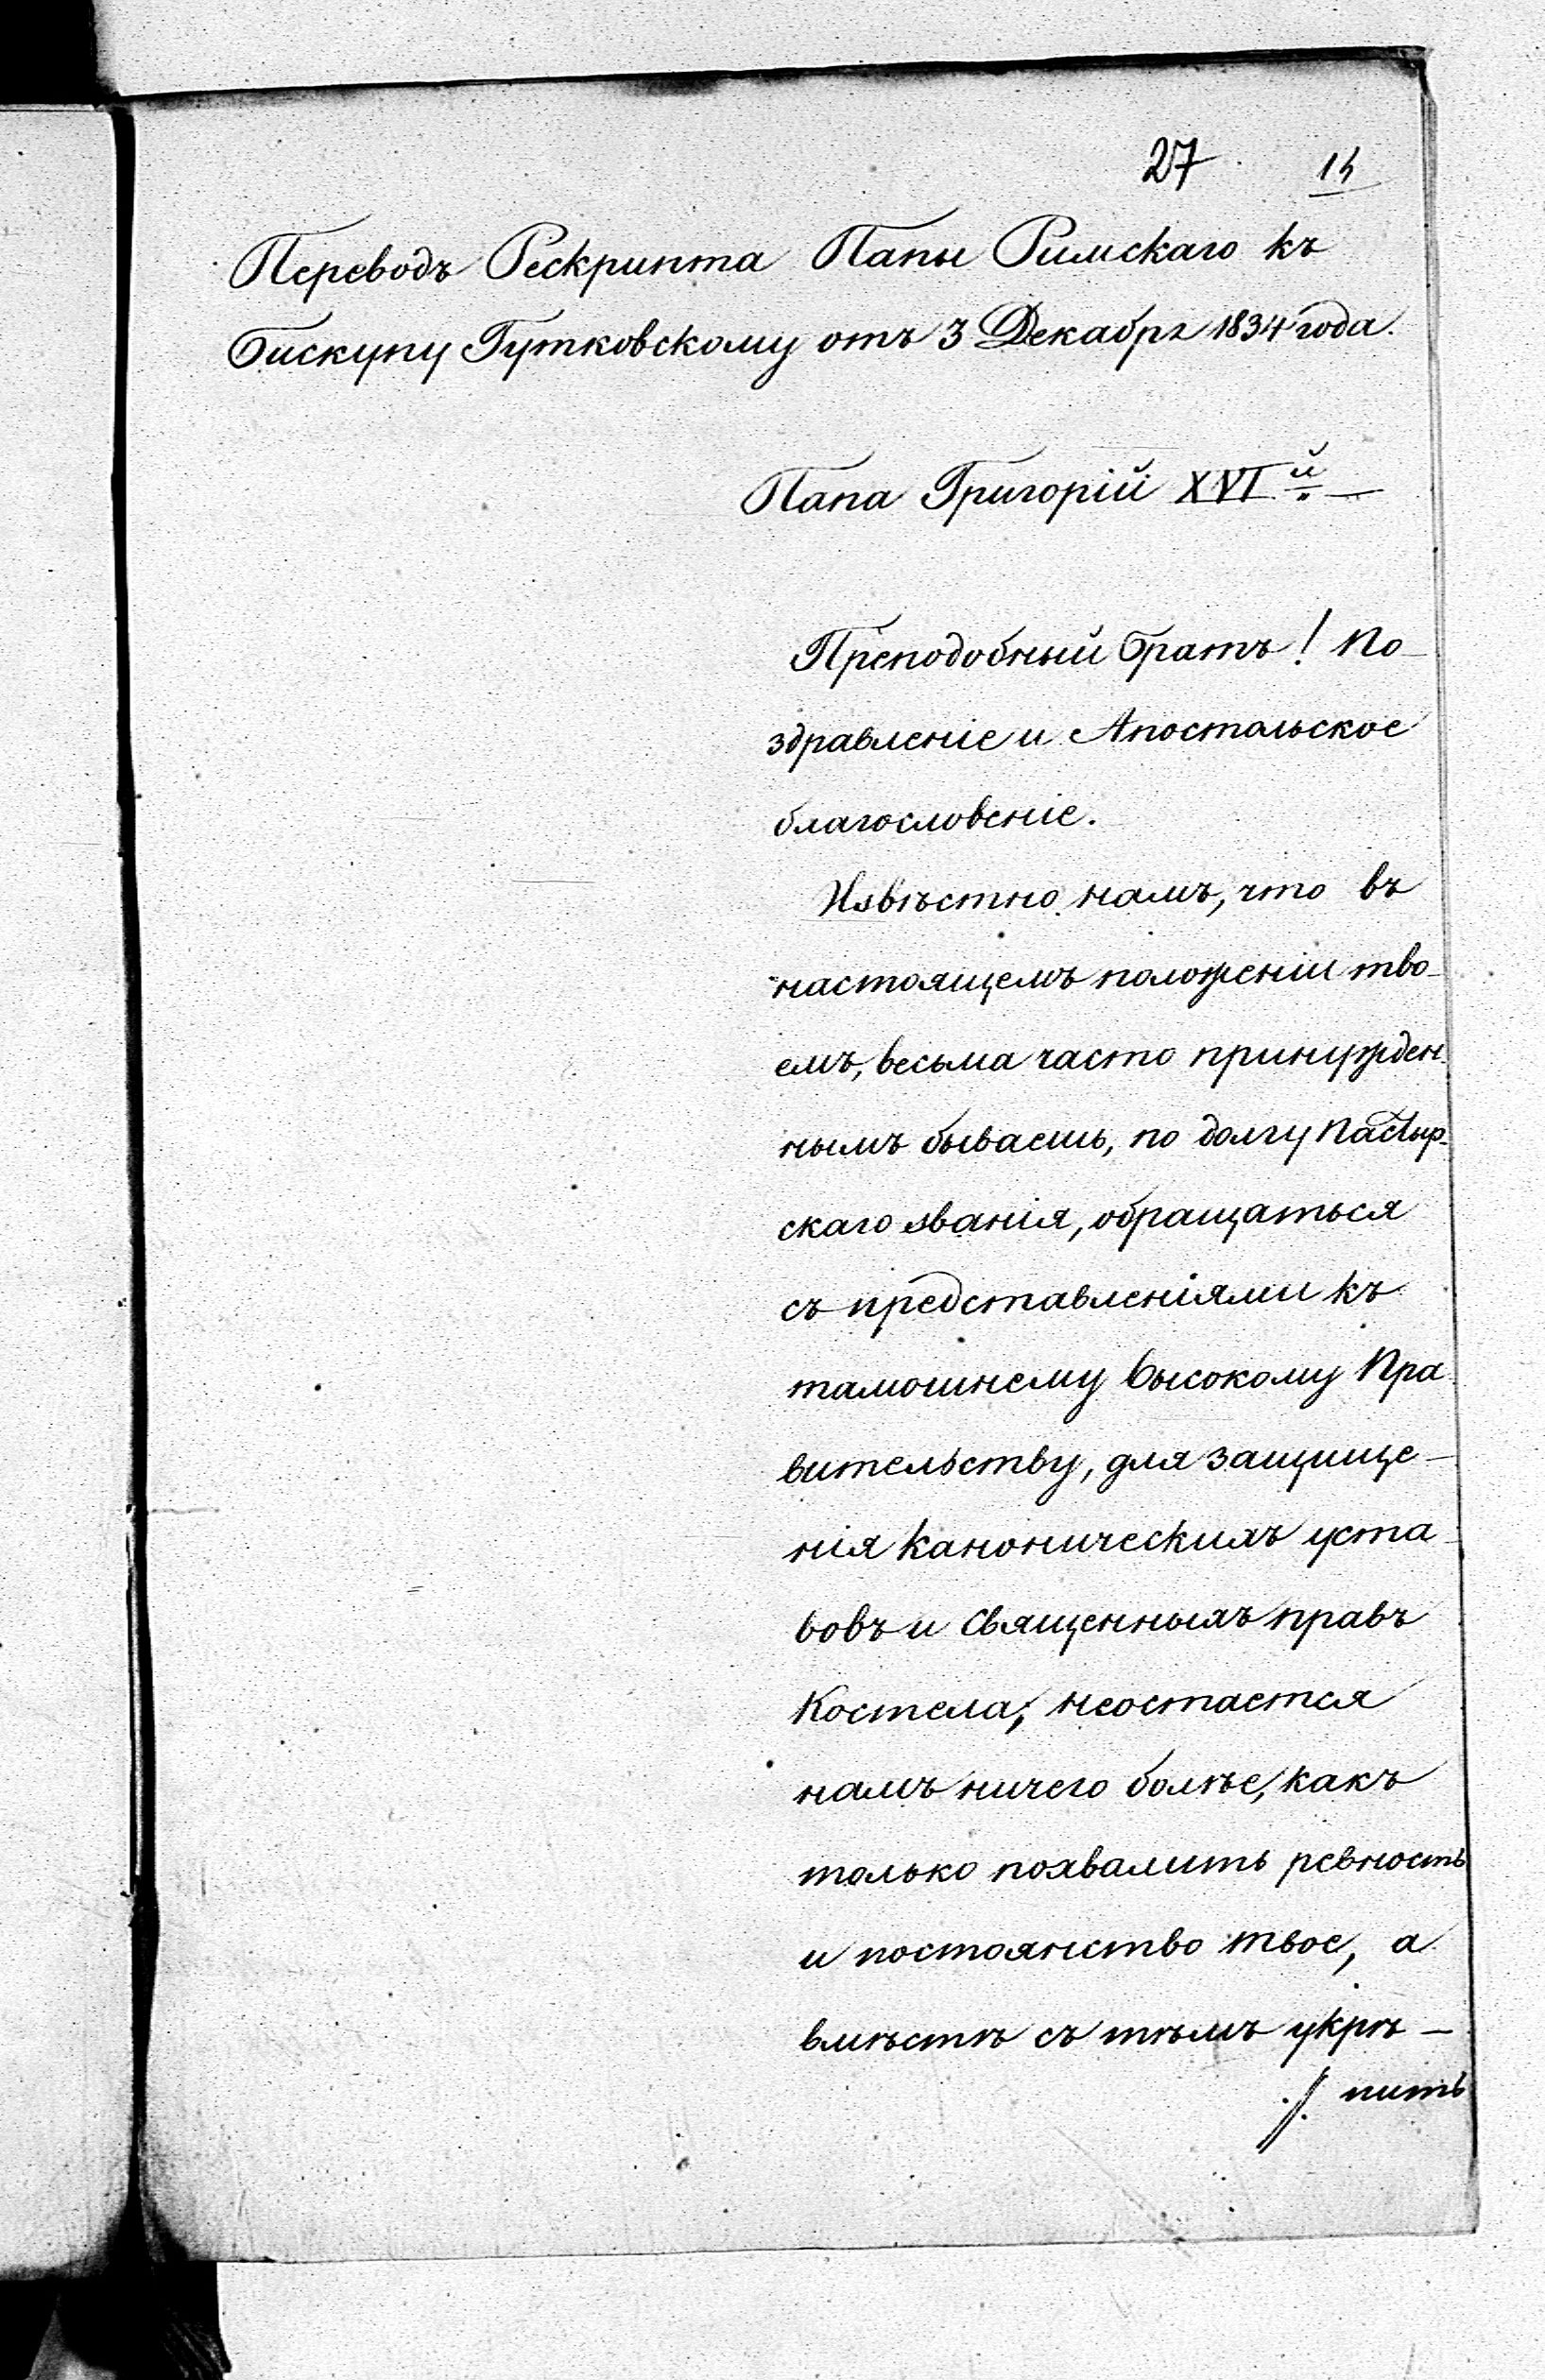 27 14
Переводъ Рескрипта Папы Римскаго къ
Бискупу Гутковскому отъ 3 Декабря 1834 года.
Папа Григорій XVI й
Преподобный братъ! По-
здравленіе и Апостольское
благословеніе.
Извѣстно намъ, что въ
настоящемъ положеніи тво-
емъ, весьма часто принужден-
нымъ бываешь, по долгу Пастыр-
скаго званія, обращаться
съ представленіями къ
тамошнему Высокому Пра-
вительству, для защище-
нія каноническихъ уста-
вовъ и Священныхъ правъ
Костела; неостается
намъ ничего болѣе, какъ
только похвалить ревность
и постоянство твое, а
вмѣстѣ съ тѣмъ укрѣ-
./. пить